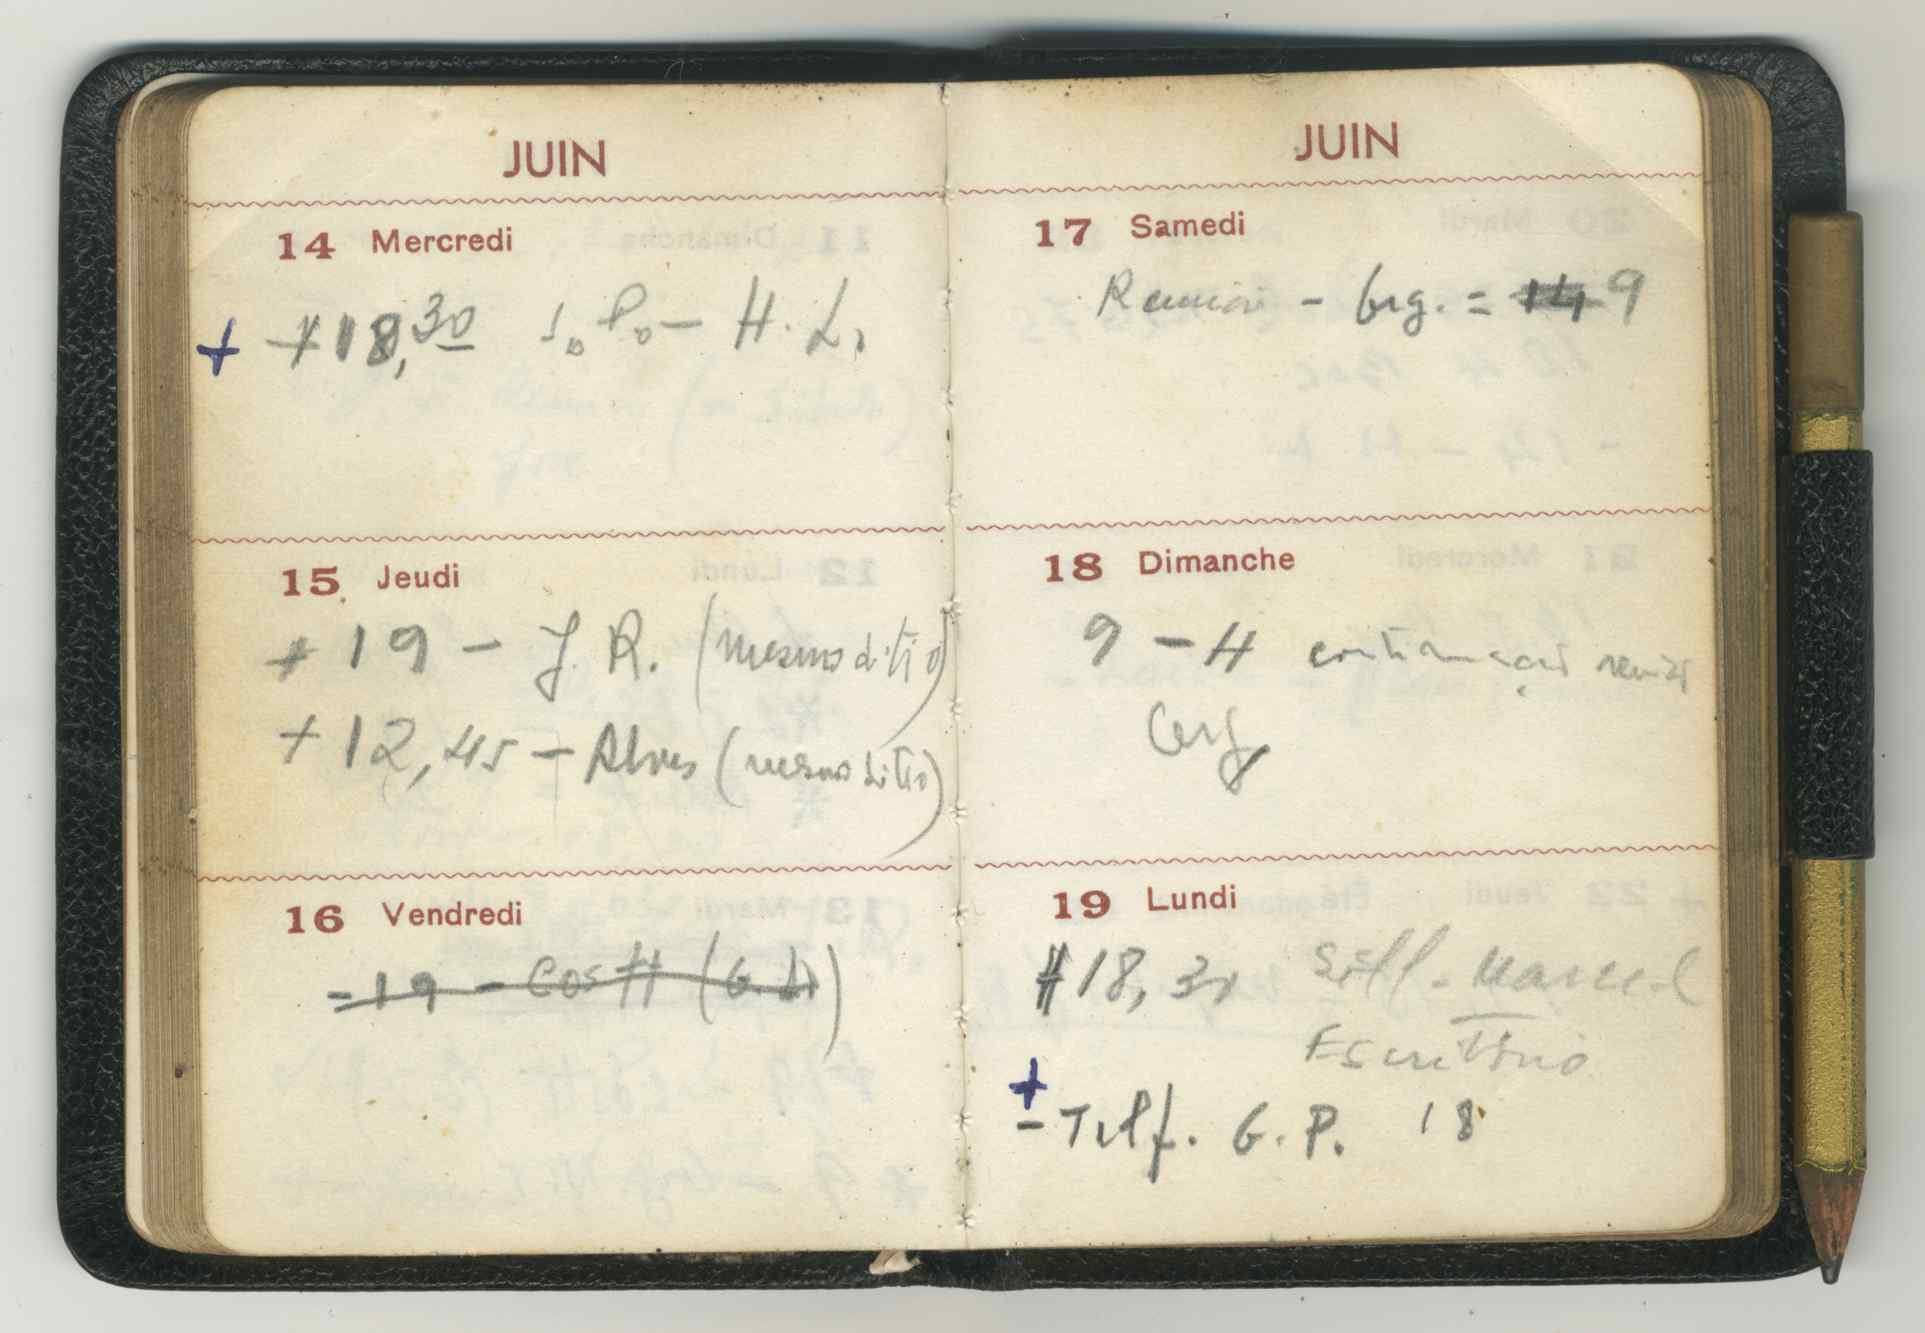 JUIN
14 Mercredi
+ +18,30 - H. L.
15 Jeudi
+ 19 - J. R. (mesmo sitio)
+ 12,45 - Alves (mesmo sitio)
16 Vendredi
- 19 - Cos H (G L)
JUIN
17 Samedi
Reunião - Org. = 14 9
18 Dimanche
9 - H continuação reunião
Org
19 Lundi
+ 18,30 - Marcel
Escritório
+
- Telf. G. P. 18